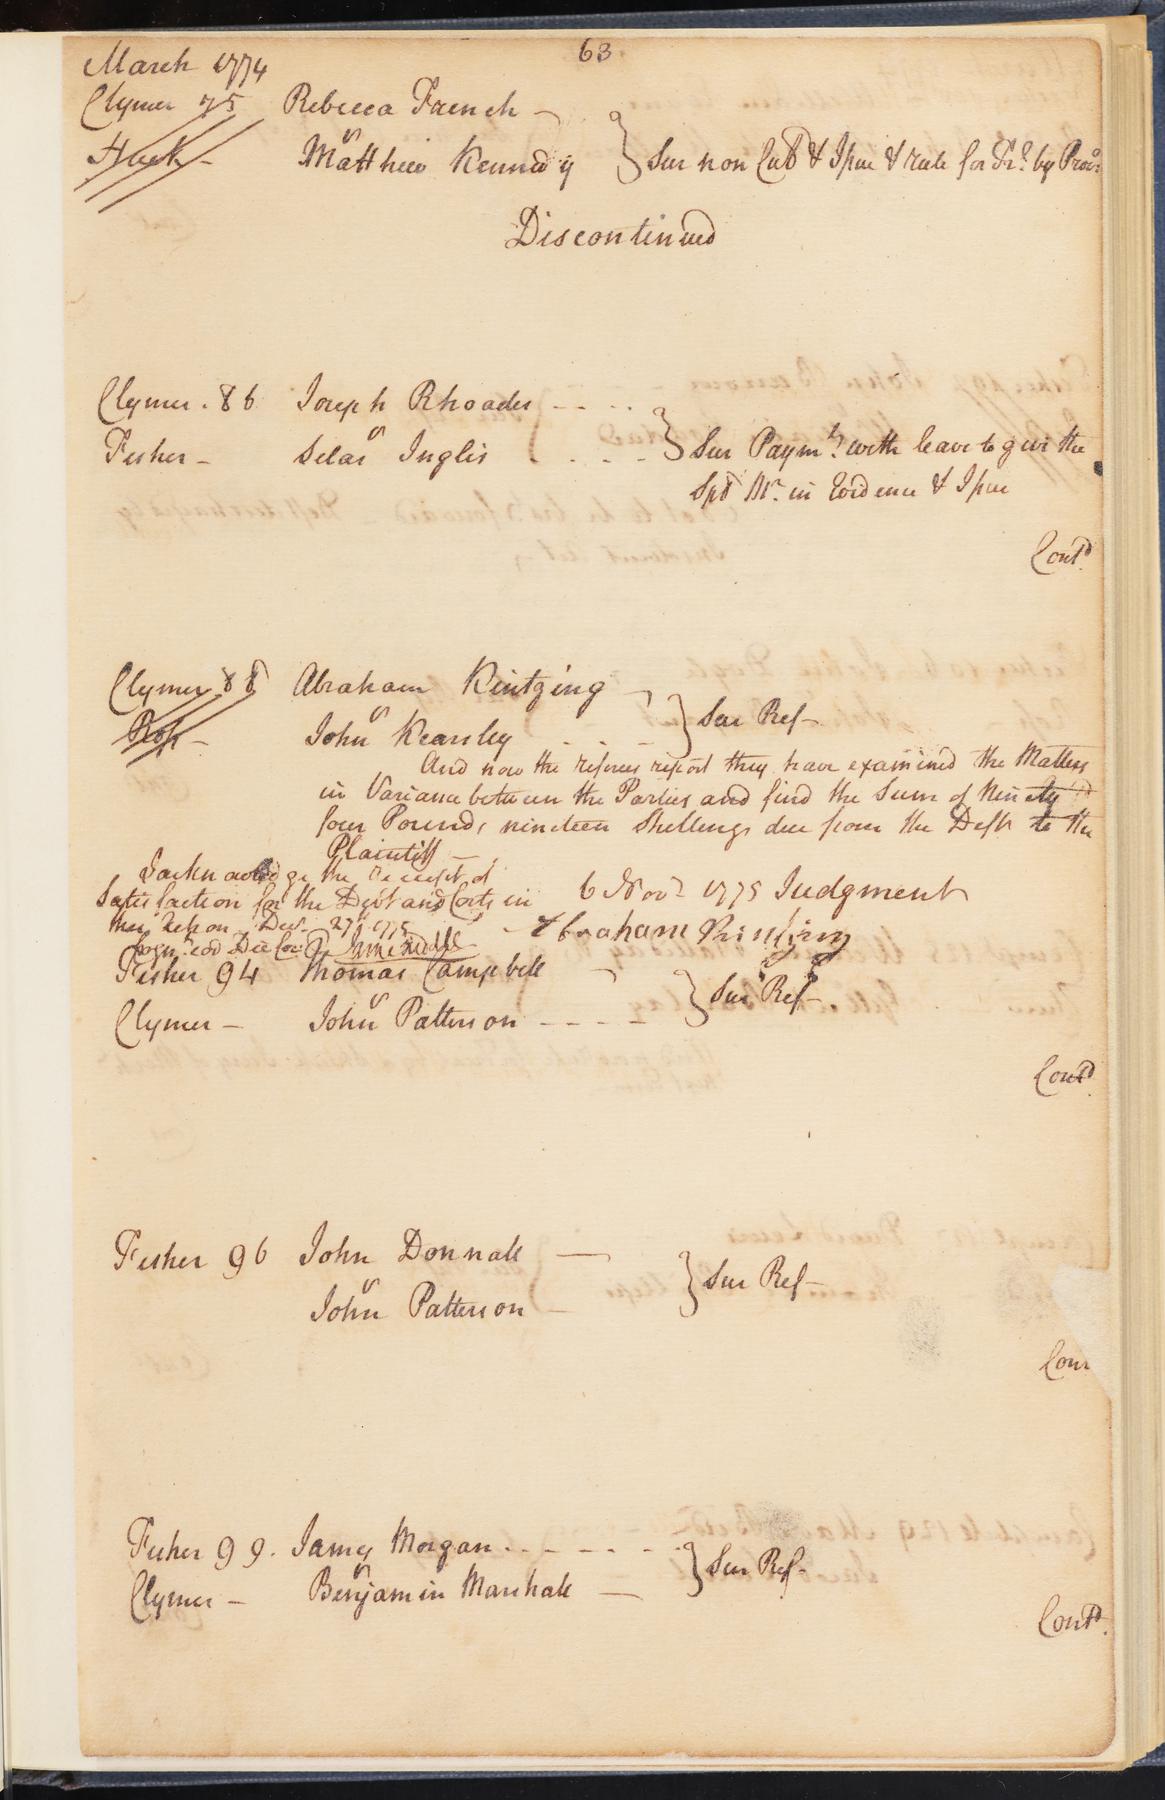 63.
March 1774
Clymer 75 Rebecca French
Huck - vs Matthew Kennedy } Sur non Cul & Issue & rule for Tr? by Provo
Discontinued
Clymer. 86 Joseph Rhoades - - . . .
Fisher - vs Silas Inglis . . - - } Sur Paymt. with leave to give the
Spl Mr. in Evidence & Issue
Contd.
Clymer 88 Abraham Kintzing
Ross - vs John Kearsley - - - } Sur Ref -
And now the referees report they have examined the Matters
in Variance between the Parties and find the Sum of Ninety
four Pounds, nineteen Shillings due from the Deft to the
Plaintiff -
6 Novr 1775 Judgment
I acknowledge the Receipt of
Satisfaction for the Debt and Costs in
this Action Decr. 27th 1775
Abraham Kintzing
Cogn. eod Die Cor:
Fisher 94 Thomas Campbell
Clymer - vs John Patterson - - - - } Sur Ref -
Contd
Fisher 96 John Donnall —
vs John Patterson — } Sur Ref -
Con
Fisher 99. James Morgan . . - - - - -
Clymer - vs Benjamin Marshall — } Sur Ref -
Contd.